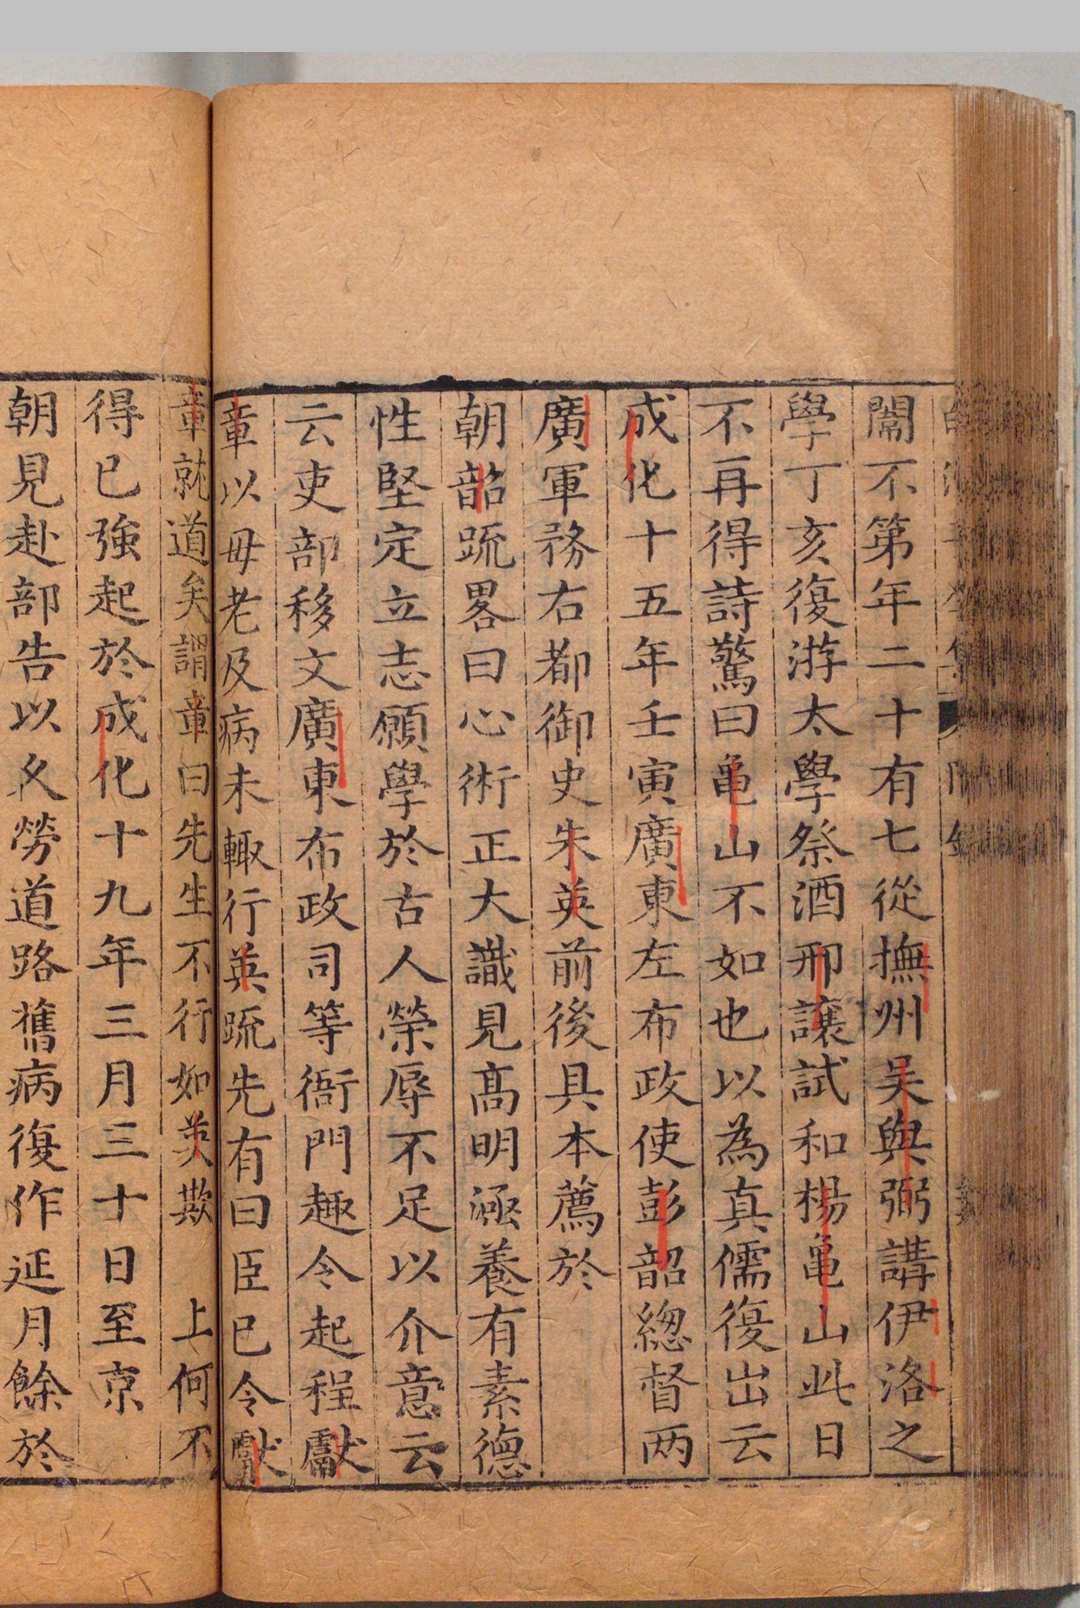 闈不第年二十有七從撫州吴與弼講伊洛之
學丁亥復游太學祭酒邢讓試和楊龜山此日
不再得詩驚曰龜山不如也以為真儒復出云
成化十五年壬寅廣東左布政使彭韶緫督两
廣軍務右都御史朱英前後具本薦於
朝韶疏畧曰心術正大識見高明涵養有素德
性堅定立志願學於古人榮辱不足以介意云
云吏部移文廣東布政司等衙門趣令起程獻
章以母老及病未輙行英疏先有曰臣已令獻
章就道矣謂章曰先生不行如英欺 上何不
得已強起於成化十九年三月三十日至京
朝見赴部告以久勞道路舊病復作延月餘於